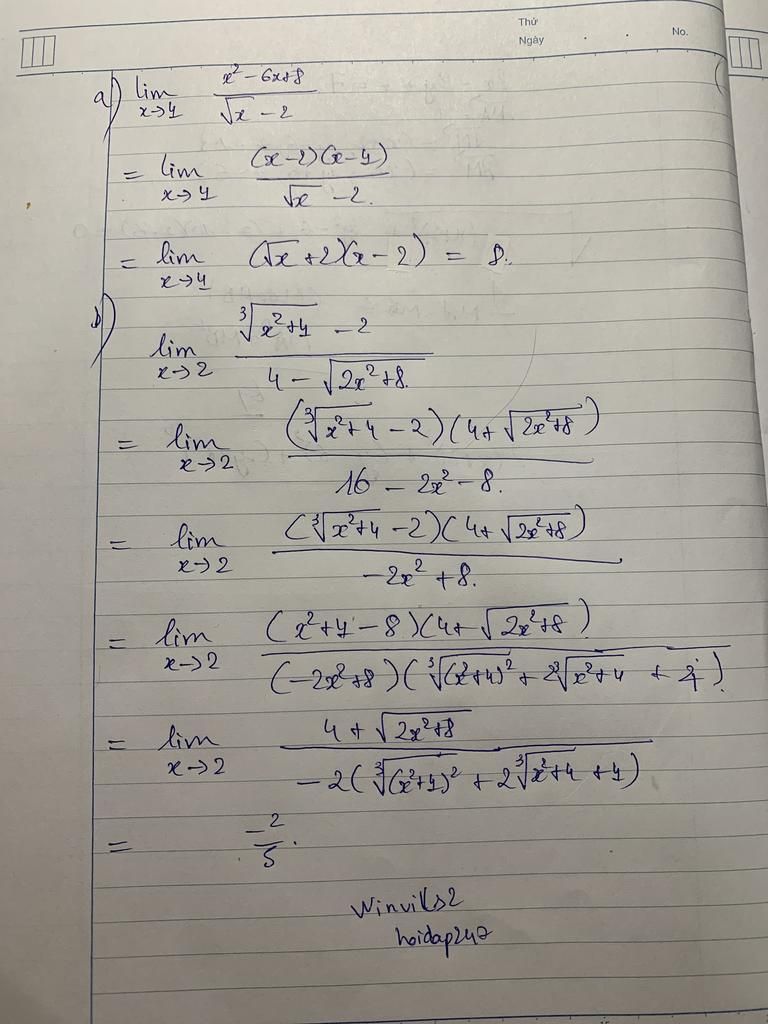 Thứ
Ngày . . No.
a) lim x→4 (x² − 6x + 8)/(√x − 2)
= lim x→4 ((x − 2)(x − 4))/(√x − 2).
= lim x→4 (√x + 2)(x − 2) = 8.
b) lim x→2 (∛(x² + 4) − 2)/(4 − √(2x² + 8)).
= lim x→2 ((∛(x² + 4) − 2)(4 + √(2x² + 8)))/(16 − 2x² − 8).
= lim x→2 ((∛(x² + 4) − 2)(4 + √(2x² + 8)))/(−2x² + 8).
= lim x→2 ((x² + 4 − 8)(4 + √(2x² + 8)))/((−2x² + 8)(∛(x² + 4)² + 2∛(x² + 4) + 4)).
= lim x→2 (4 + √(2x² + 8))/(−2(∛(x² + 4)² + 2∛(x² + 4) + 4))
= −2/5.
hoidap247